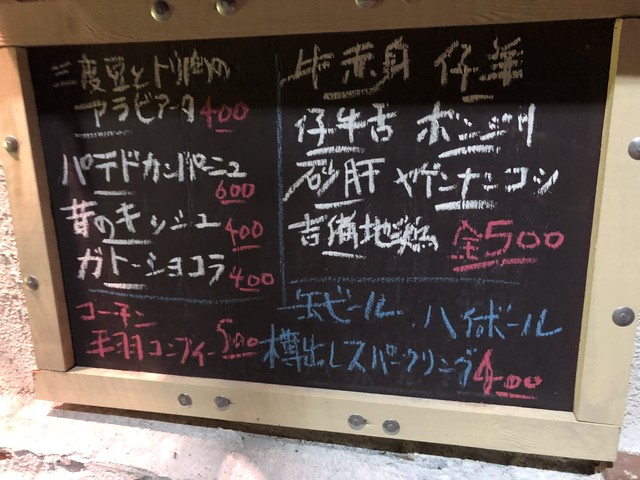 三度豆と
アラビアータ 400
パテドカンパーニュ
600
キッシュ 400
ガトーショコラ 400
コーチン
手羽コンフィー 500
牛赤身 仔羊
仔牛舌 ボンジリ
砂肝 ヤゲンナンコツ
吉備地鶏 全500
缶ビール ハイボール
樽出しスパークリング 400